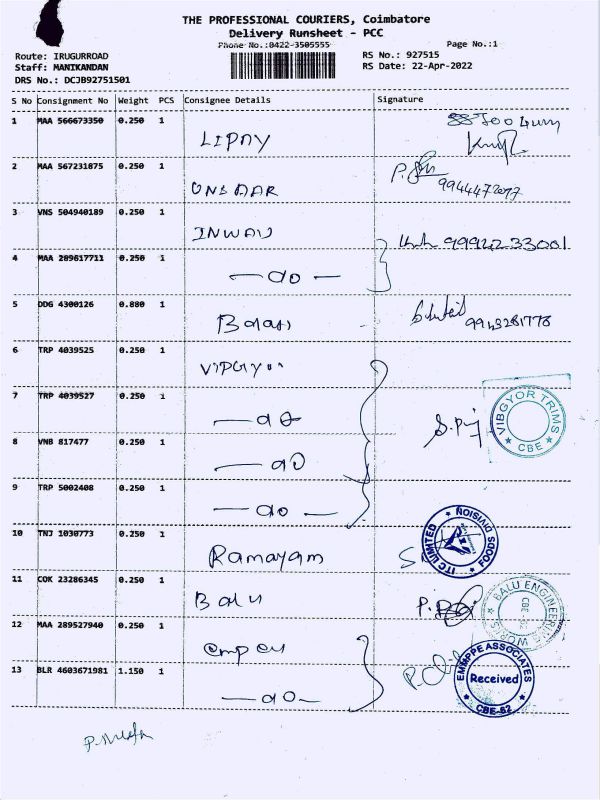 THE PROFESSIONAL COURIERS, Coimbatore
Delivery Runsheet - PCC
Phone No.:0422-3505555 Page No.:1
Route: IRUGURROAD RS No.: 927515
Staff: MANIKANDAN RS Date: 22-Apr-2022
DRS No.: DCJB92751501
S No Consignment No Weight PCS Consignee Details Signature
1 MAA 566673350 0.250 1
2 MAA 567231875 0.250 1
3 VNS 504940189 0.250 1
INWAU 9994233001
4 MAA 289617711 0.250 1
do
5 DDG 4300126 0.880 1
Balaji 9943281778
6 TRP 4039525 0.250 1
7 TRP 4039527 0.250 1
do
VIBGYOR TRIMS
CBE
8 VNB 817477 0.250 1
do
9 TRP 5002408 0.250 1
do
10 TNJ 1030773 0.250 1
Ramayam
ITC LIMITED FOODS DIVISION
11 COK 23286345 0.250 1
Balu
BALU ENGINEERING WORKS
CBE - 62
12 MAA 289527940 0.250 1
13 BLR 4603671981 1.150 1
do
EMMPPE ASSOCIATES
Received
CBE-62